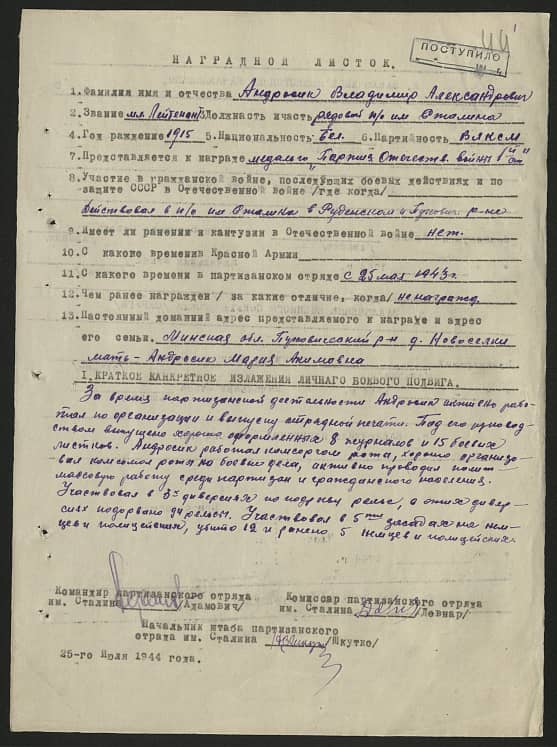 44
ПОСТУПИЛО
НАГРАДНОЙ ЛИСТОК.
1. Фамилия имя и отчества Андросик Владимир Александрович
2. Звание мл Лейтенант 3. Должнасть и часть рядовой п/о им Сталина
4. Год раждение 1915 5. Национальность бел. 6. Партийность ВЛКСМ
7. Представляется к награде медалью "Партиз Отечеств. войны 1й ст"
8. Участие в гражданской войне, последующих боевых действиях и по
защите СССР в Отечественной войне /где когда/
Действовал в п/о им Сталина в Руденском и Пухович. р-не
9. Имеет ли ранении и кантузии в Отечественной войне нет.
10. С какого времении Красной Армии
11. С какого времени в партизанском отряде с 25 мая 1943 г.
12. Чем ранее награжден / за какие отличие, когда/ не награжд.
13. Настоянный домашний адрес представляемого к награде и адрес
его семьи. Минская обл. Пуховичский р-н д. Новоселки
мать - Андросик Мария Акимовна
I. КРАТКОЕ КАНКРЕТНОЕ ИЗЛАЖЕНИЯ ЛИЧНАГО БОЕВОГО ПОДВИГА.
За время партизанской деятельности Андросик активно рабо-
тал по организации и выпуску отрядной печати. Под его руковод-
ством выпущено хорошо оформленных 8 журналов и 15 боевых
листков. Андросик работая комсоргом роты, хорошо организо-
вал комсомол роты на боевые дела, активно проводил полит-
массовую работу среди партизан и гражданского населения.
Участвовал в 3х диверсиях по подрыву рельс, в этих дивер-
сиях подорвано 24 рельсы. Участвовал в 5ти засадах на нем-
цев и полицейских, убито 12 и ранено 5 немцев и полицейских.
Командир партизанского отряда Комиссар партизанского отряда
им. Сталина /Адамович/ им. Сталина /Левнар/
Начальник штаба партизанского
отряда им. Сталина /Шкутко/
25-го Июля 1944 года.